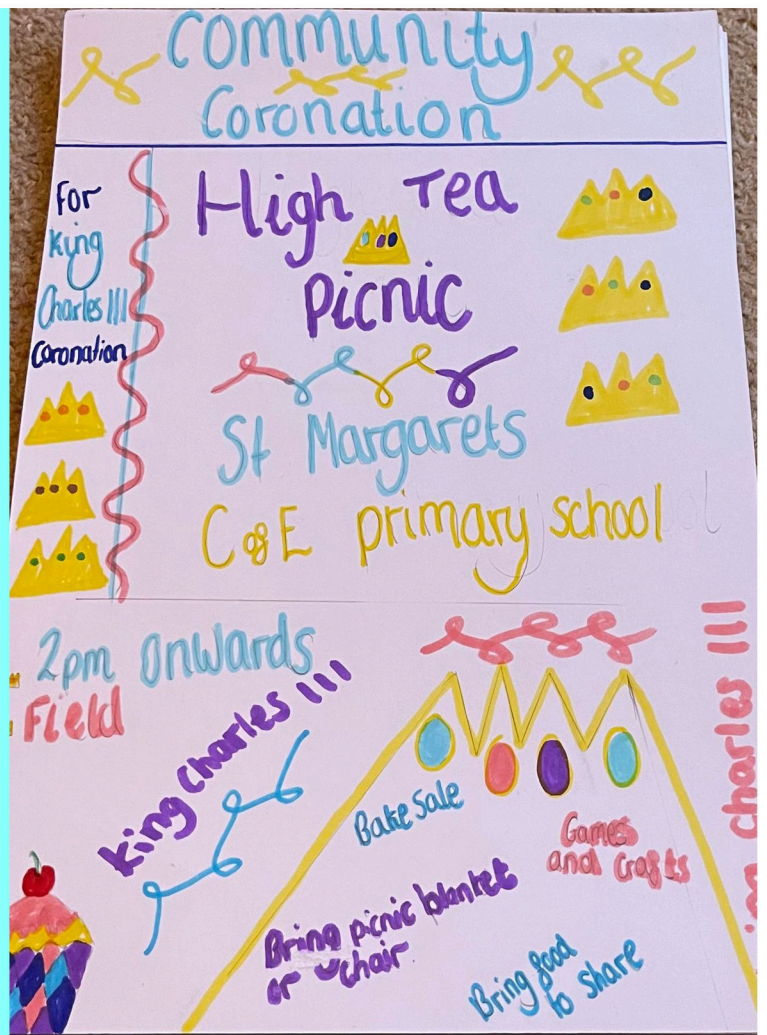 Community
Coronation
For
King
Charles III
Coronation
High Tea
Picnic
St Margarets
C of E primary school
2pm onwards
Field
King Charles III
Bake sale
Games
and Crafts
Bring picnic blanket
or chair
Bring food
to share
Charles III